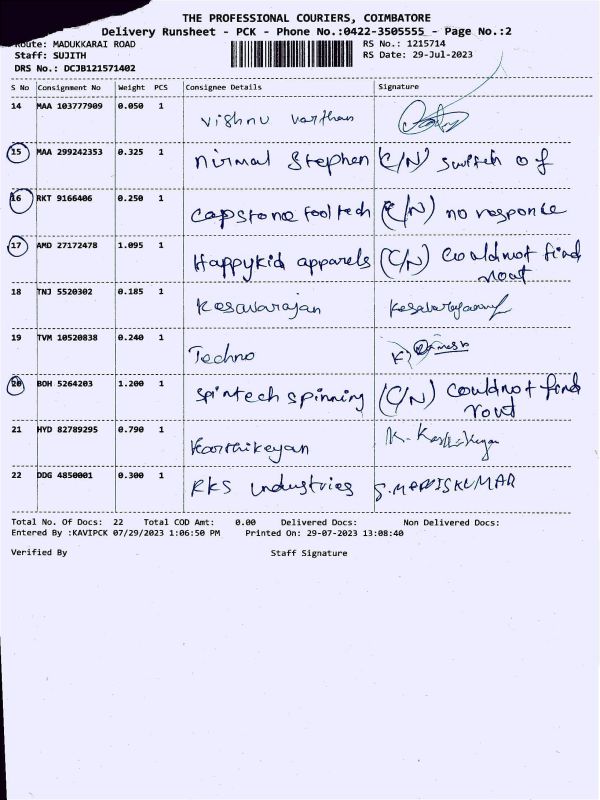 THE PROFESSIONAL COURIERS, COIMBATORE
Delivery Runsheet - PCK - Phone No.:0422-3505555 - Page No.:2
Route: MADUKKARAI ROAD RS No.: 1215714
Staff: SUJITH RS Date: 29-Jul-2023
DRS No.: DCJB121571402
S No Consignment No Weight PCS Consignee Details Signature
14 MAA 103777909 0.050 1 Vishnu varthan
15 MAA 299242353 0.325 1 Nirmal Stephen (C/N) switch of
16 RKT 9166406 0.250 1 Capstone fooltech (C/N) no responce
17 AMD 27172478 1.095 1 Happykid apparels (C/N) Couldnot find
rout
18 TNJ 5520302 0.185 1 Kesavarajan Kesavarajan
19 TVM 10520838 0.240 1 Techno K Ramesh
20 BOH 5264203 1.200 1 Spintech spinning (C/N) Couldnot find
rout
21 HYD 82789295 0.790 1 Karthikeyan K. Karthikeyan
22 DDG 4850001 0.300 1 RKS industries
Total No. Of Docs: 22 Total COD Amt: 0.00 Delivered Docs: Non Delivered Docs:
Entered By :KAVIPCK 07/29/2023 1:06:50 PM Printed On: 29-07-2023 13:08:40
Verified By Staff Signature